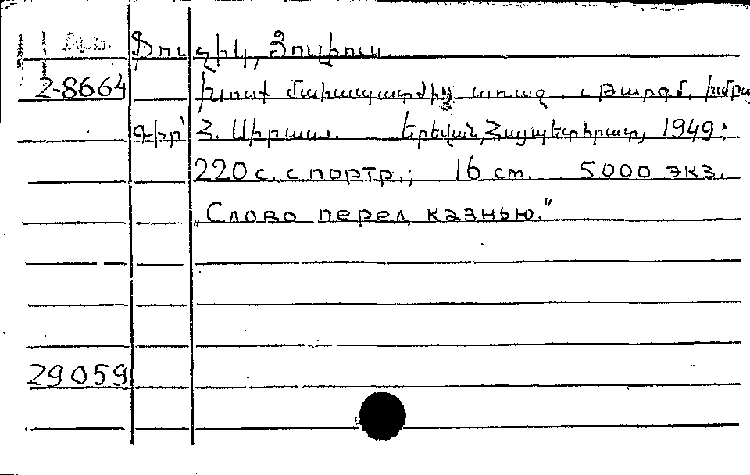 Ֆուչիկ, Յուլիուս
2-8664 Խոսք մահապատժից առաջ. Թարգմ. խմբա
գիր՝ Հ. Սիրաս. Երևան, Հայպետհրատ, 1949:
220 с. с портр.; 16 см. 5000 экз.
„Слово перед казнью."
29059